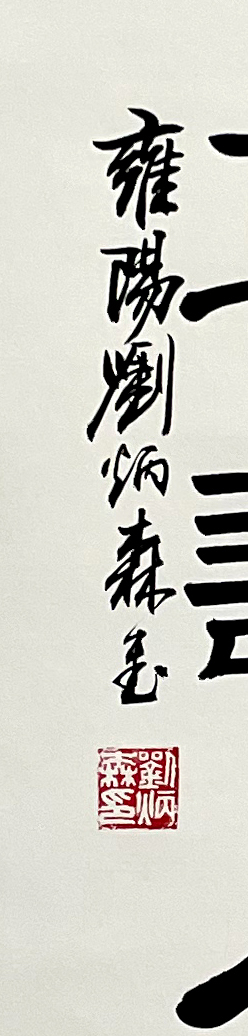 雍陽劉炳森書
劉炳森印